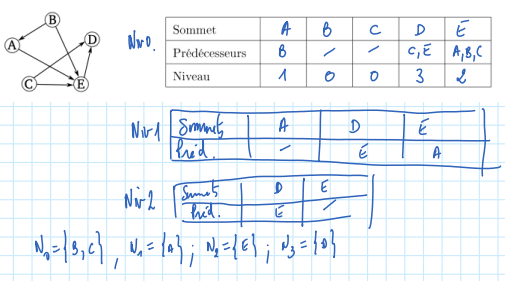 B
A
D
C
E
Niv0.
Sommet A B C D E
Prédécesseurs B / / C,E A,B,C
Niveau 1 0 0 3 2
Niv1
Sommets A D E
Préd. / E A
Niv2
Sommets D E
Préd. E /
N₀={B,C}, N₁={A}; N₂={E}; N₃={D}